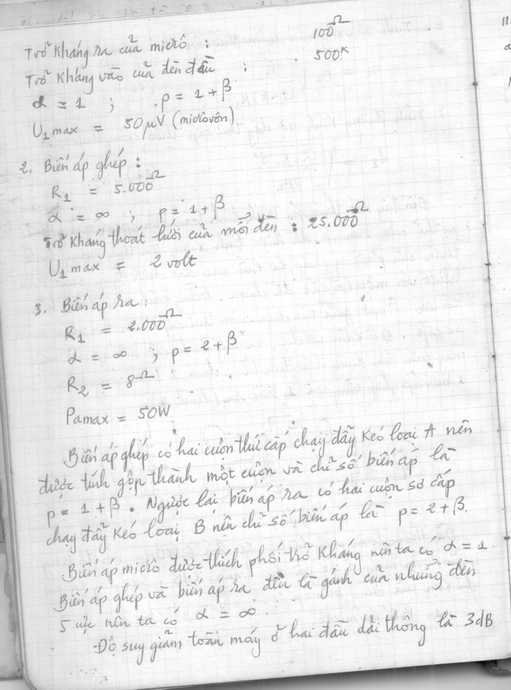 Trở kháng ra của micrô : 100Ω
Trở kháng vào của đèn đầu : 500K
α = 1 ; p = 1 + β
U₁max = 50μV (microvôn)
2. Biến áp ghép :
R₁ = 5.000Ω
α = ∞ ; p = 1 + β
Trở kháng thoát lưới của mỗi đèn : 25.000Ω
U₁max = 2 volt
3. Biến áp ra :
R₁ = 2.000Ω
α = ∞ ; p = 2 + β
R₂ = 8Ω
Pamax = 50W
Biến áp ghép có hai cuộn thứ cấp chạy đẩy kéo loại A nên
được tính gộp thành một cuộn và chỉ số biến áp là
p = 1 + β. Ngược lại biến áp ra có hai cuộn sơ cấp
chạy đẩy kéo loại B nên chỉ số biến áp là p = 2 + β.
Biến áp micrô được thích phối trở kháng nên ta có α = 1
Biến áp ghép và biến áp ra đều là gánh của những đèn
5 cực nên ta có α = ∞
Độ suy giảm toàn máy ở hai đầu dải thông là 3dB